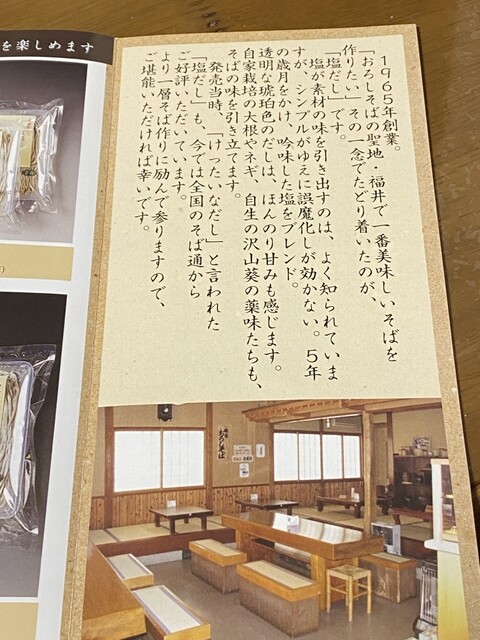 を楽しめます
1965年創業。
「おろしそばの聖地・福井で一番美味しいそばを
作りたい」その一念でたどり着いたのが、
「塩だし」です。
塩が素材の味を引き出すのは、よく知られていま
すが、シンプルがゆえに誤魔化しが効かない。5年
の歳月をかけ、吟味した塩をブレンド。
透明な琥珀色のだしは、ほんのり甘みも感じます。
自家栽培の大根やネギ、自生の沢山葵の薬味たちも、
そばの味を引き立てます。
発売当時、「けったいなだし」と言われた
「塩だし」も、今では全国のそば通から
ご好評いただいています。
より一層そば作りに励んで参りますので、
ご堪能いただければ幸いです。